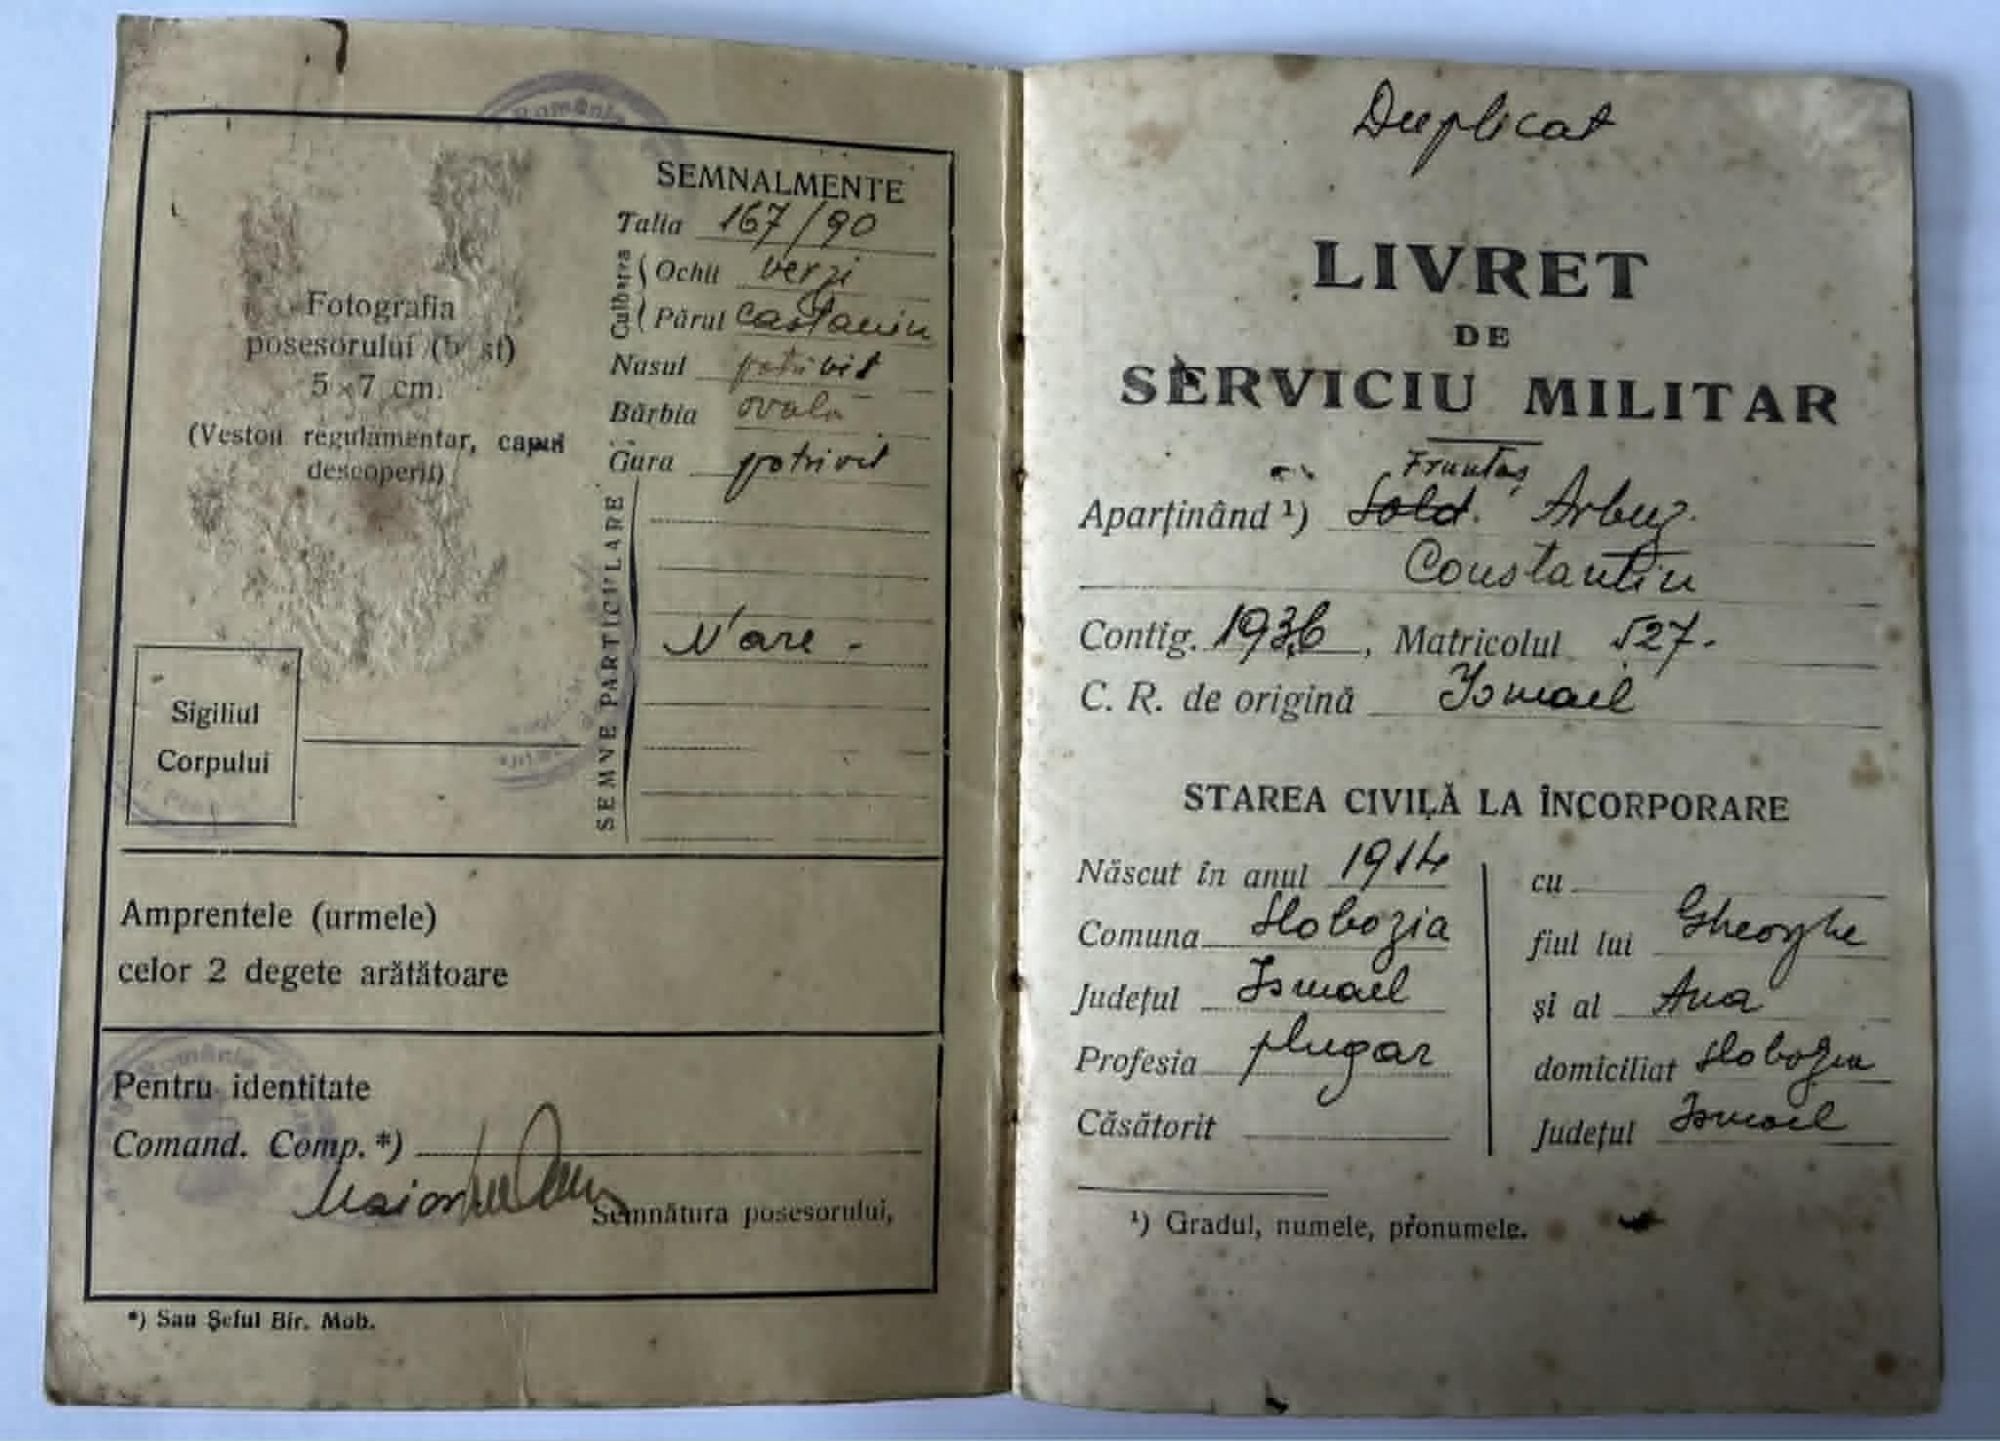 România
SEMNALMENTE
Talia 167/90
Culoarea
Ochii verzi
Părul Castaniu
Nasul potrivit
Bărbia ovală
Gura potrivit
Fotografia
posesorului (bust)
5×7 cm.
(Veston regulamentar, capul
descoperit)
SEMNE PARTICULARE
N'are -
Sigiliul
Corpului
Amprentele (urmele)
celor 2 degete arătătoare
România
Pentru identitate
Comand. Comp.*)
Maior
Semnătura posesorului,
*) Sau Șeful Bir. Mob.
Duplicat
LIVRET
DE
SERVICIU MILITAR
Fruntaș
Aparținând ¹) Sold. Arbuz
Constantin
Contig. 1936, Matricolul 527.
C. R. de origină Ismael
STAREA CIVILĂ LA ÎNCORPORARE
Născut în anul 1914
Comuna Slobozia
Județul Ismael
Profesia plugar
Căsătorit
cu
fiul lui Gheorghe
și al Ana
domiciliat Slobozia
Județul Ismael
¹) Gradul, numele, pronumele.